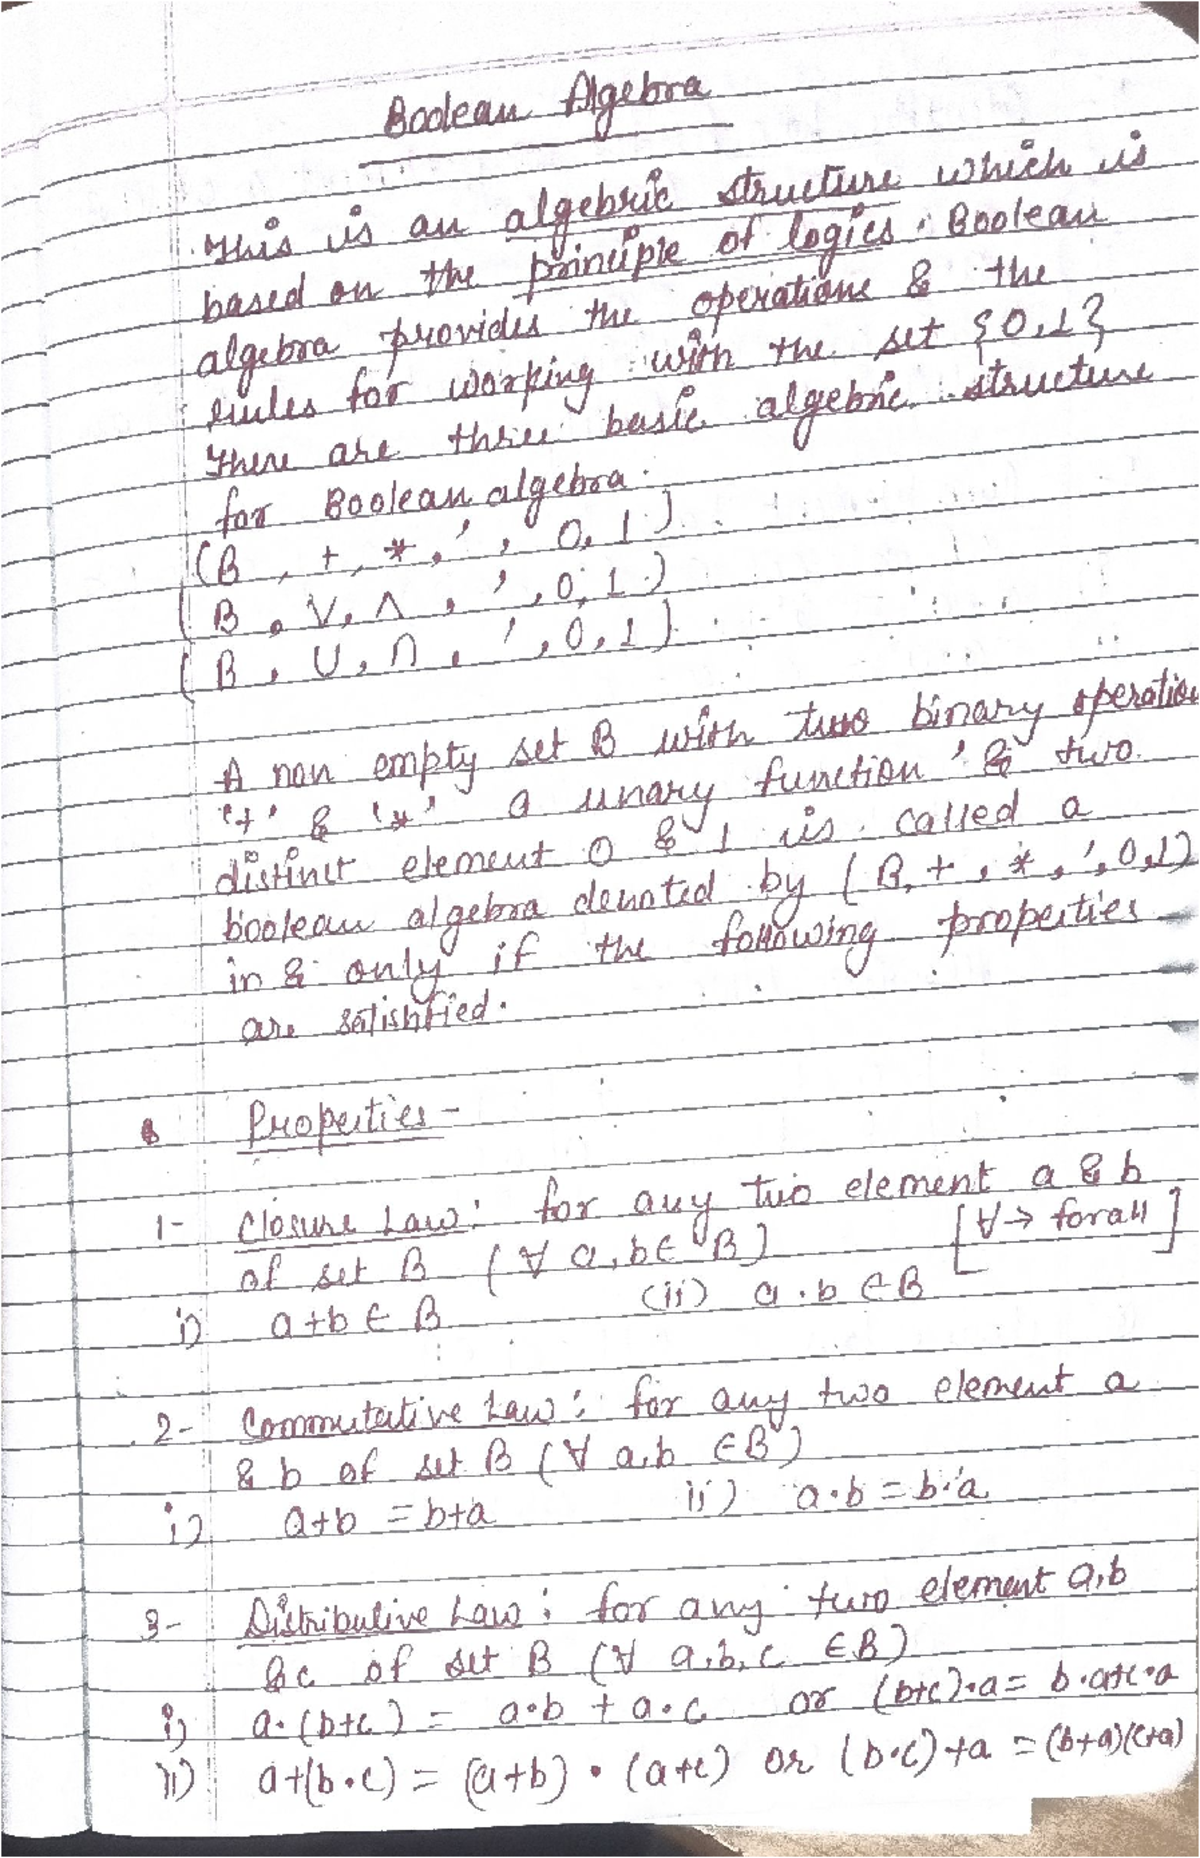 Boolean Algebra
This is an algebric structure which is
based on the principle of logics. Boolean
algebra provides the operations & the
rules for working with the set {0,1}
There are three basic algebric structure
for Boolean algebra.
(B, +, *, ', 0, 1)
(B, ∨, ∧, ', 0, 1)
(B, ∪, ∩, ', 0, 1)
A non empty set B with two binary operation
'+' & '*' a unary function ' & two
distinct element 0 & 1 is called a
boolean algebra denoted by (B, +, *, ', 0,1)
in & only if the following properties
are satishfied.
Properties -
1- Closure Law: for any two element a & b
of set B (∀ a, b ∈ B) [∀ → for all]
i) a+b ∈ B (ii) a . b ∈ B
2- Commutative Law: for any two element a
& b of set B (∀ a,b ∈ B)
i) a+b = b+a ii) a.b = b.a
3- Distributive Law: for any two element a,b
&c of set B (∀ a,b,c ∈ B)
i) a.(b+c) = a.b + a.c or (b+c).a = b.a+c.a
ii) a+(b.c) = (a+b) . (a+c) or (b.c)+a = (b+a)(c+a)